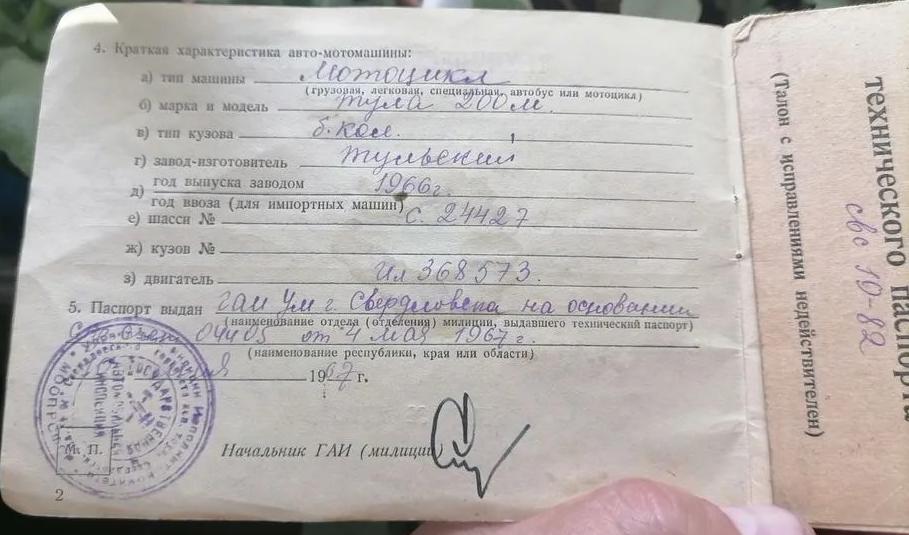 4. Краткая характеристика авто-мотомашины:
а) тип машины Мотоцикл
(грузовая, легковая, специальная, автобус или мотоцикл)
б) марка и модель Тула 200м.
в) тип кузова б. кол.
г) завод-изготовитель Тульский
д) год выпуска заводом 1966г.
год ввоза (для импортных машин)
е) шасси № С. 24427
ж) кузов №
з) двигатель 368573.
5. Паспорт выдан ГАИ УМ г. Свердловска на основании
(наименование отдела (отделения) милиции, выдавшего технический паспорт)
от 4 мая 1967 г.
(наименование республики, края или области)
1967 г.
М. П.
Начальник ГАИ (милиции)
2
технического паспорта
свс 19-82
(Талон с исправлениями недействителен)